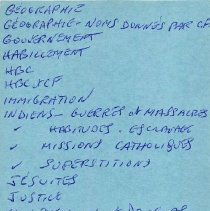 GEOGRAPHIE
GEOGRAPHIE - NOMS DONNÉS PAR CF
GOUVERNEMENT
HABILLEMENT
HBC
HBC & CF
IMMIGRATION
INDIENS - GUERRES et MASSACRES
✓ HABITUDES - ESCLAVAGE
✓ MISSIONS CATHOLIQUES
✓ SUPERSTITIONS
JESUITES
JUSTICE